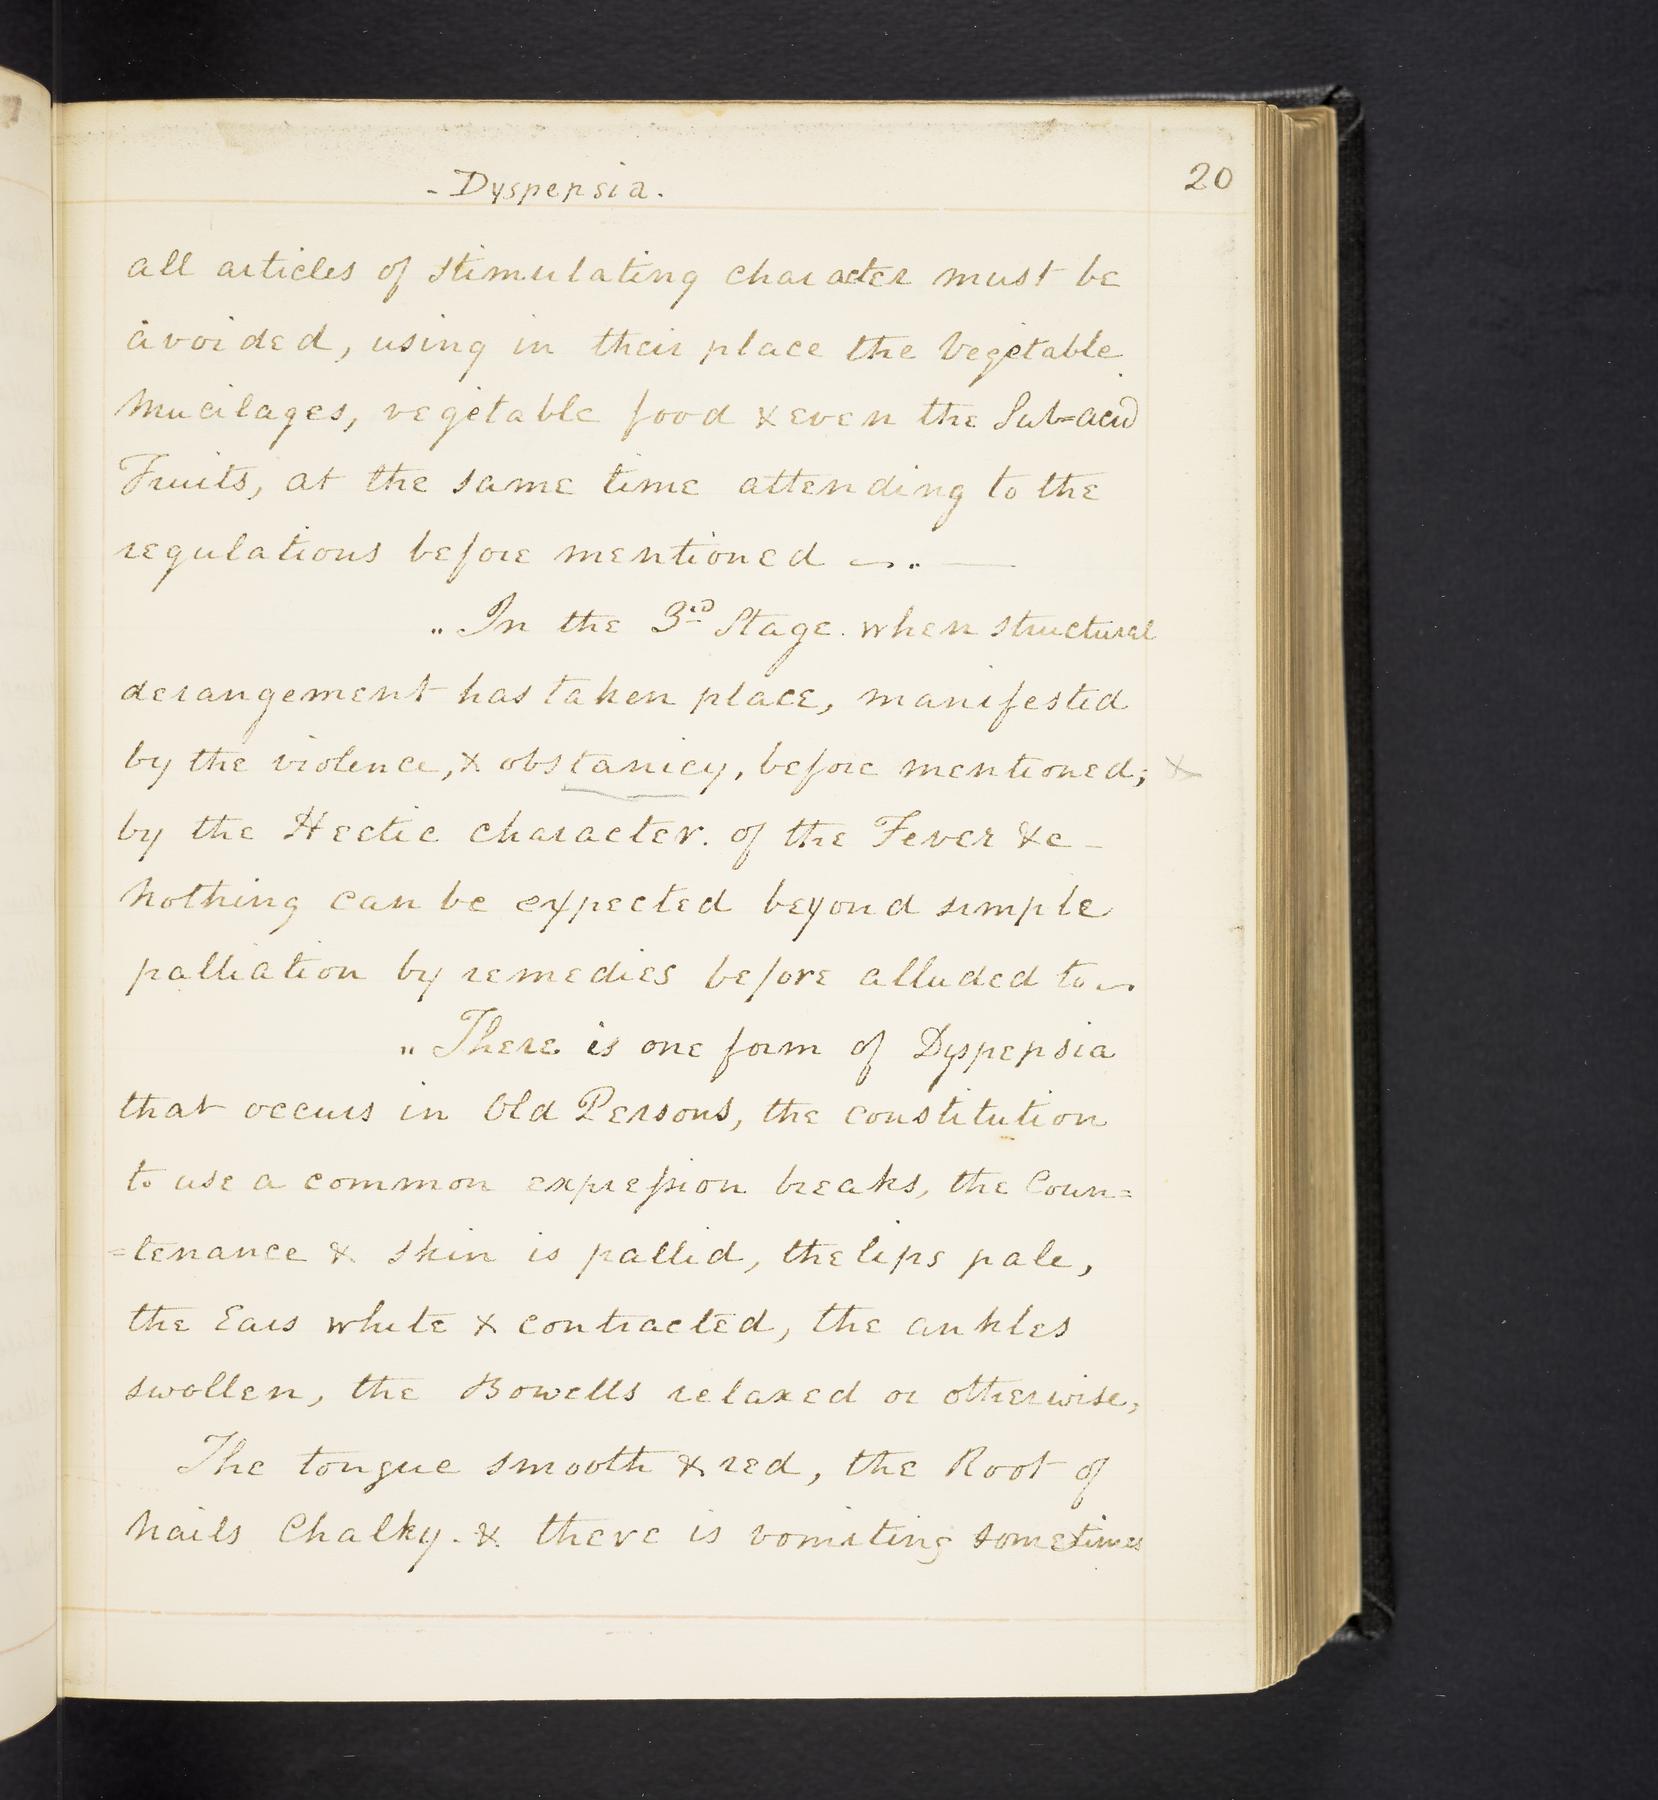 - Dyspepsia.
20
all articles of stimulating character must be
avoided, using in their place the Vegetable
Mucilages, vegetable food & even the Sub=acid
Fruits, at the same time attending to the
regulations before mentioned —. —
„ In the 3rd Stage. when structural
derangement has taken place, manifested
by the violence, & obstanicy, before mentioned; x
by the Hectic character. of the Fever &c -
Nothing can be expected beyond simple
palliation by remedies before alluded to —
„ There is one form of Dyspepsia
that occurs in Old Persons, the constitution
to use a common expreſsion breaks, the Coun=
=tenance & skin is pallid, the lips pale,
the Ears white & contracted, the ankles
swollen, the Bowells relaxed or otherwise,
The tongue smooth & red, the Root of
Nails Chalky. & there is vomiting sometimes